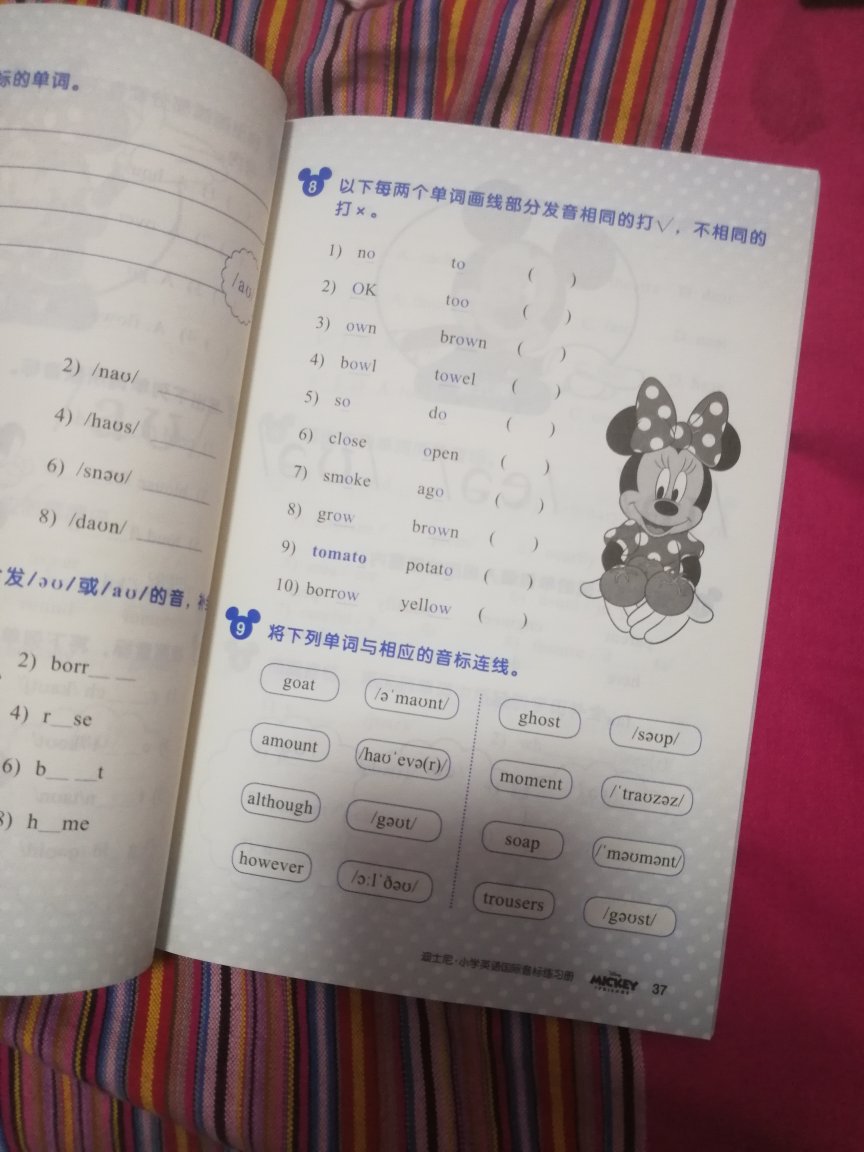 标的单词。
/aʊ
2) /naʊ/
4) /haʊs/
6) /snəʊ/
8) /daʊn/
发/əʊ/或/aʊ/的音,
2) borr__ __
4) r__se
6) b__ __t
8) h__me
8 以下每两个单词画线部分发音相同的打√,不相同的
打×。
1) no to ( )
2) OK too ( )
3) own brown ( )
4) bowl towel ( )
5) so do ( )
6) close open ( )
7) smoke ago ( )
8) grow brown ( )
9) tomato potato ( )
10) borrow yellow ( )
9 将下列单词与相应的音标连线。
goat /əˈmaʊnt/ ghost /səʊp/
amount /haʊˈevə(r)/ moment /ˈtraʊzəz/
although /gəʊt/ soap /ˈməʊmənt/
however /ɔːlˈðəʊ/ trousers /gəʊst/
迪士尼·小学英语国际音标练习册 Disney MICKEY & FRIENDS 37